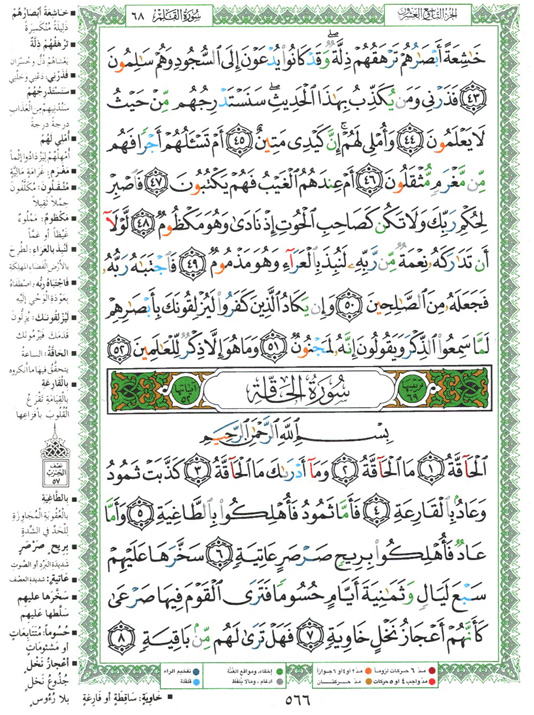 الجزء التاسع والعشرون
سورة القلم ٦٨
خَاشِعَةً أَبْصَارُهُمْ تَرْهَقُهُمْ ذِلَّةٌ وَقَدْ كَانُوا يُدْعَوْنَ إِلَى السُّجُودِ وَهُمْ سَالِمُونَ
٤٣ فَذَرْنِي وَمَن يُكَذِّبُ بِهَٰذَا الْحَدِيثِ سَنَسْتَدْرِجُهُم مِّنْ حَيْثُ
لَا يَعْلَمُونَ ٤٤ وَأُمْلِي لَهُمْ إِنَّ كَيْدِي مَتِينٌ ٤٥ أَمْ تَسْـَٔلُهُمْ أَجْرًا فَهُم
مِّن مَّغْرَمٍ مُّثْقَلُونَ ٤٦ أَمْ عِندَهُمُ الْغَيْبُ فَهُمْ يَكْتُبُونَ ٤٧ فَاصْبِرْ
لِحُكْمِ رَبِّكَ وَلَا تَكُن كَصَاحِبِ الْحُوتِ إِذْ نَادَىٰ وَهُوَ مَكْظُومٌ ٤٨ لَّوْلَا
أَن تَدَارَكَهُ نِعْمَةٌ مِّن رَّبِّهِ لَنُبِذَ بِالْعَرَاءِ وَهُوَ مَذْمُومٌ ٤٩ فَاجْتَبَاهُ رَبُّهُ
فَجَعَلَهُ مِنَ الصَّالِحِينَ ٥٠ وَإِن يَكَادُ الَّذِينَ كَفَرُوا لَيُزْلِقُونَكَ بِأَبْصَارِهِمْ
لَمَّا سَمِعُوا الذِّكْرَ وَيَقُولُونَ إِنَّهُ لَمَجْنُونٌ ٥١ وَمَا هُوَ إِلَّا ذِكْرٌ لِّلْعَالَمِينَ ٥٢
ترتيبها ٦٩ سُورَةُ الْحَاقَّةِ آياتها ٥٢
بِسْمِ اللَّهِ الرَّحْمَٰنِ الرَّحِيمِ
الْحَاقَّةُ ١ مَا الْحَاقَّةُ ٢ وَمَا أَدْرَاكَ مَا الْحَاقَّةُ ٣ كَذَّبَتْ ثَمُودُ
وَعَادٌ بِالْقَارِعَةِ ٤ فَأَمَّا ثَمُودُ فَأُهْلِكُوا بِالطَّاغِيَةِ ٥ وَأَمَّا
عَادٌ فَأُهْلِكُوا بِرِيحٍ صَرْصَرٍ عَاتِيَةٍ ٦ سَخَّرَهَا عَلَيْهِمْ
سَبْعَ لَيَالٍ وَثَمَٰنِيَةَ أَيَّامٍ حُسُومًا فَتَرَى الْقَوْمَ فِيهَا صَرْعَىٰ
كَأَنَّهُمْ أَعْجَازُ نَخْلٍ خَاوِيَةٍ ٧ فَهَلْ تَرَىٰ لَهُم مِّن بَاقِيَةٍ ٨
خَاشِعَةً أَبْصَارُهُمْ
ذليلة منكسرة
تَرْهَقُهُمْ ذِلَّةٌ
يغشاهم ذل وخسران
فَذَرْنِي: دعني وخلني
سَنَسْتَدْرِجُهُمْ
سندنيهم من العذاب
درجة درجة
أُمْلِي لَهُمْ
أمهلهم ليزدادوا إثماً
مَغْرَمٍ: غرامة مالية
مُثْقَلُونَ: مكلفون
حملاً ثقيلاً
مَكْظُومٌ: مملوء
غيظاً أو غماً
لَنُبِذَ بِالْعَرَاءِ: لطرح
بالأرض الفضاء المهلكة
فَاجْتَبَاهُ رَبُّهُ: اصطفاه
بعودة الوحي إليه
لَيُزْلِقُونَكَ: يزلون
قدمك فيرمونك
الْحَاقَّةُ: الساعة
يتحقق فيها ما أنكروه
بِالْقَارِعَةِ
بالقيامة تقرع
القلوب بأفزاعها
نصف
الحزب
٥٧
بِالطَّاغِيَةِ
بالعقوبة المجاوزة
للحد في الشدة
بِرِيحٍ صَرْصَرٍ
شديدة البرد أو الصوت
عَاتِيَةٍ: شديدة العصف
سَخَّرَهَا عَلَيْهِمْ
سلطها عليهم
حُسُومًا: متتابعات
أو مشئومات
أَعْجَازُ نَخْلٍ
جذوع نخل
بلا رؤوس
مدّ ٦ حركات لزوماً مدّ ٢ أو ٤ أو ٦ جوازاً إخفاء، ومواقع الغنة تفخيم الراء
مدّ واجب ٤ أو ٥ حركات مدّ حركتان إدغام، وما لا يلفظ قلقلة
خَاوِيَةٍ: ساقطة أو فارغة
٥٦٦